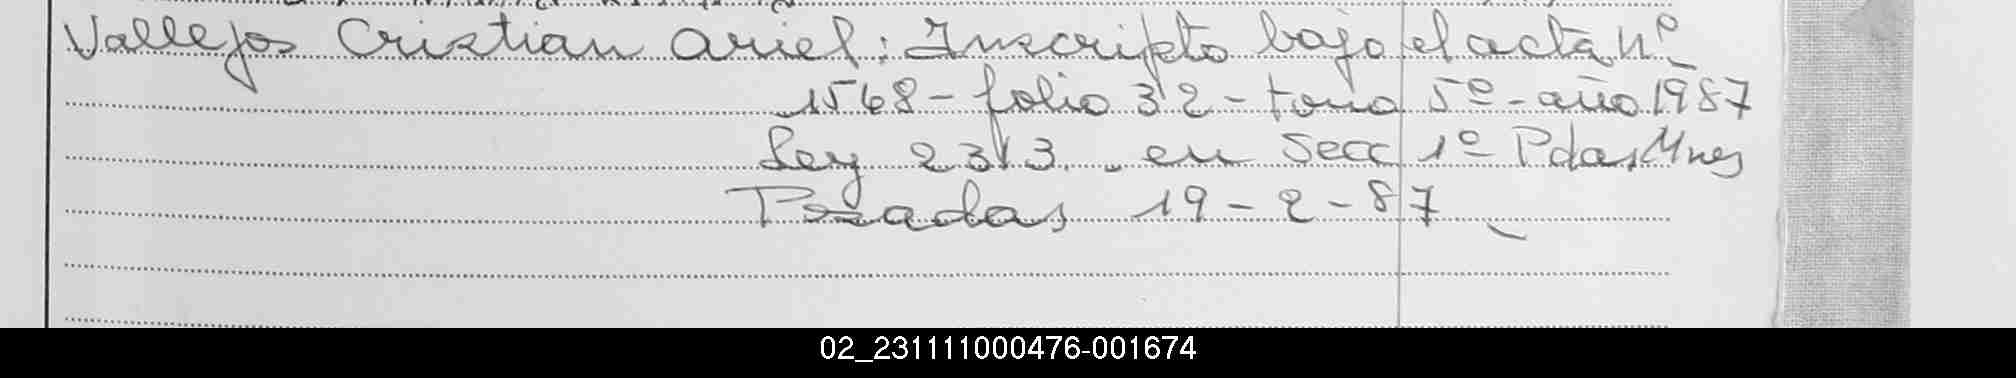 Vallejos Cristian Ariel: Inscripto bajo el acta nº
1568 - folio 32 - tomo 5º - año 1987
Ley 2313. - en Secc 1º Pdas, Mnes
Posadas 19 - 2 - 87
02_231111000476-001674